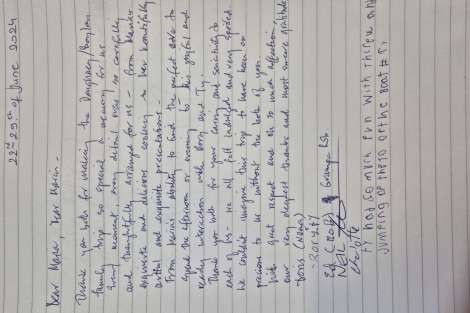 22nd-29th of June 2024
Dear Dear
Thank you both for making the
family trip so special a memory for us
every moment, every detail was so carefully
and thoughtfully arranged for us - from
exquisite and delicious cooking to her beautifully
artful and exquisite presentations -
From ability to find the perfect cove to
spend the afternoon or evening to his joyful and
ready interaction with Rory and Ty.
Thank you both for your caring and sensitivity to
each of us - we all felt indulged and very spoiled.
We couldn't imagine this trip to have been so
precious to us without the both of you.
With great respect and oh so much affection,
our very deepest thanks and most sincere gratitude
(Nona)
Ty has so much fun with
jumping of the of the boat